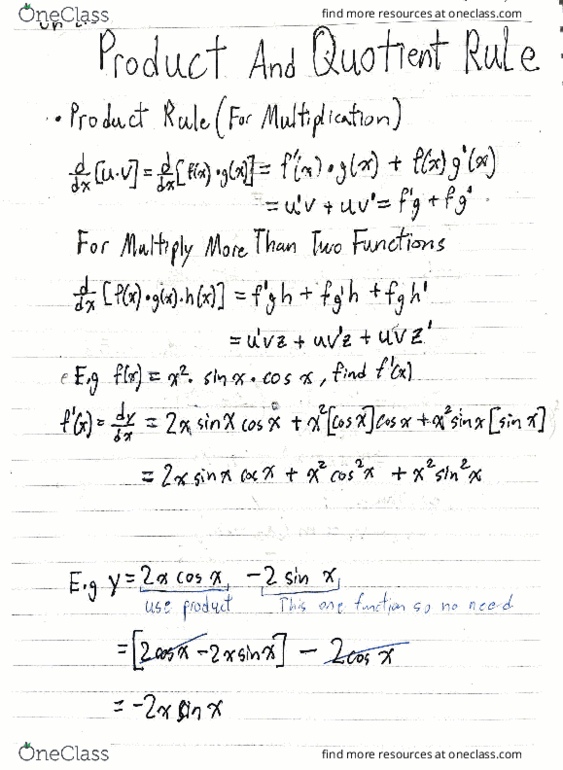 OneClass
find more resources at oneclass.com
Product And Quotient Rule
• Product Rule (For Multiplication)
d/dx [u·v] = d/dx [f(x)·g(x)] = f'(x)·g(x) + f(x)g'(x)
= u'v + uv' = f'g + fg'
For Multiply More Than Two Functions
d/dx [f(x)·g(x)·h(x)] = f'gh + fg'h + fgh'
= u'vz + uv'z + uvz'
E.g f(x) = x²· sin x · cos x, find f'(x)
f'(x) = dy/dx = 2x sin x cos x + x²[cos x]cos x + x² sin x [sin x]
= 2x sin x cos x + x² cos² x + x² sin² x
E.g y = 2x cos x - 2 sin x
use product This one function so no need
= [2cos x - 2x sin x] - 2cos x
= -2x sin x
OneClass
find more resources at oneclass.com